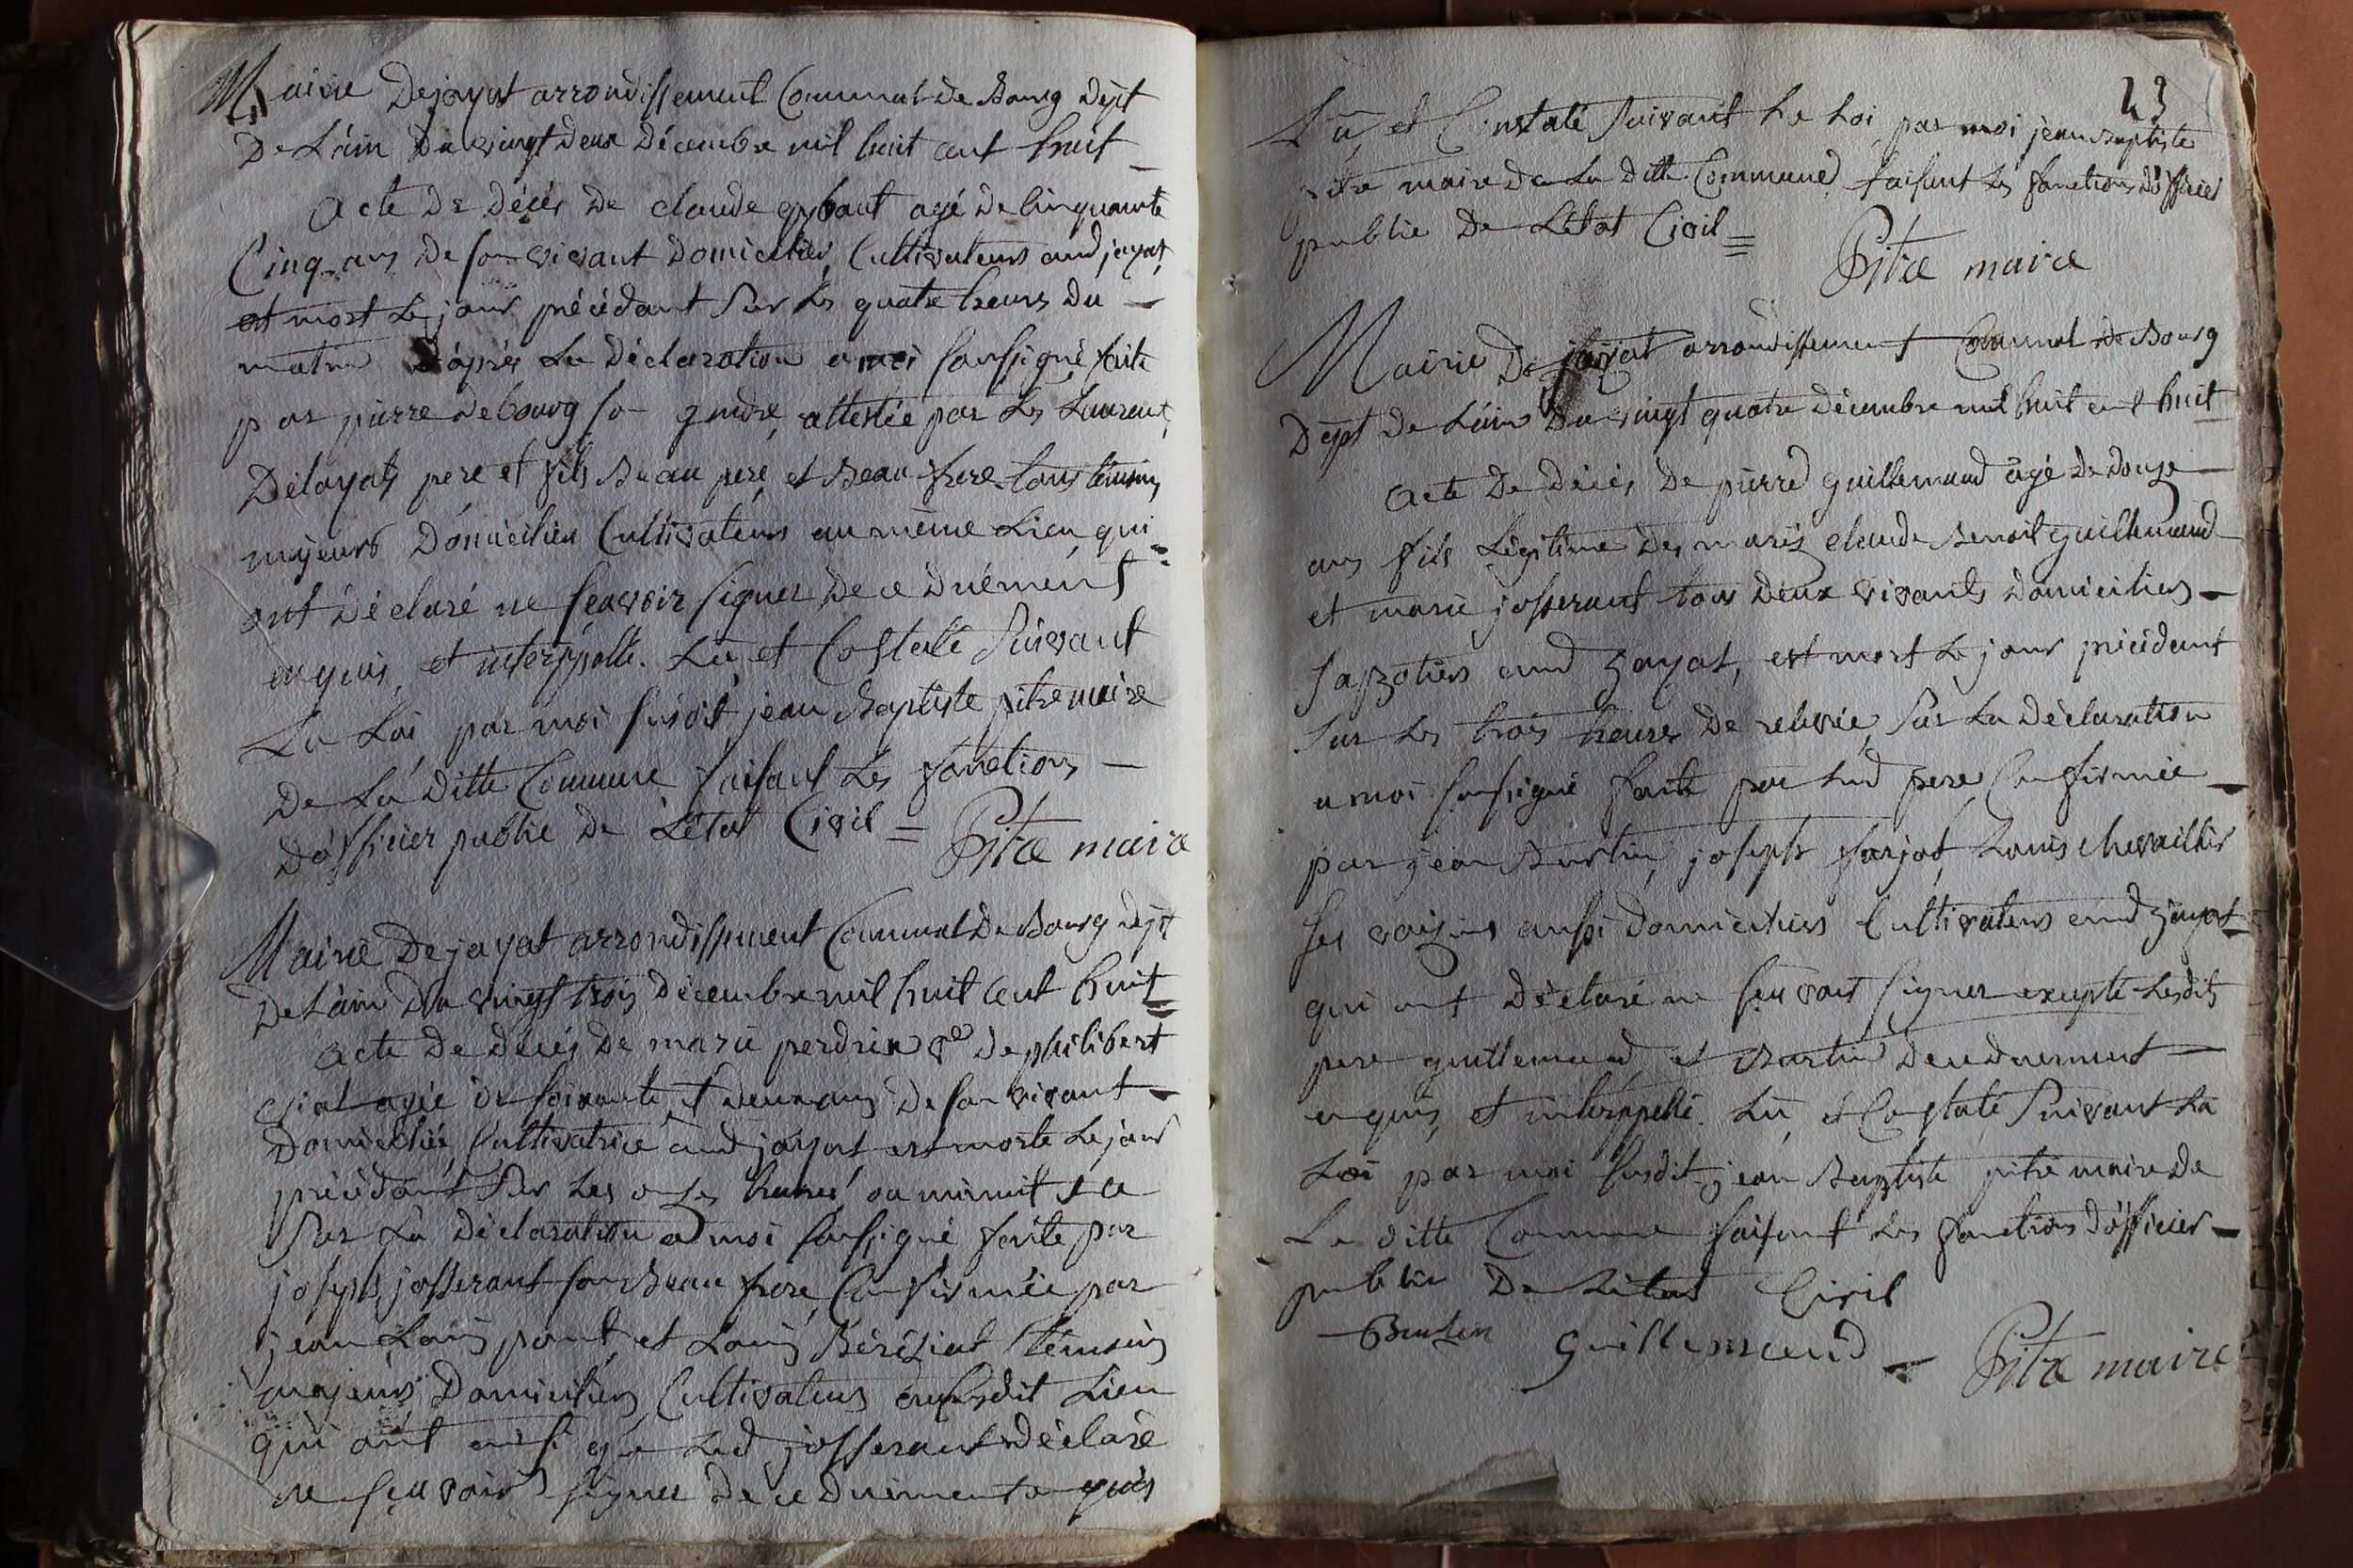 Mairie Dejayat arrondissement Communal De Bourg Dept
De L'ain Du vingt Deux Décembre mil huit cent huit
Acte De décès De claude agé De Cinquante
Cinq ans De son vivant Domiciliés Cultivateurs aud jayat,
est mort Le jour précédant Sur Les quatre heures Du
matin D'après La Déclaration a moi Soussigné faite
par pierre Debourg son gendre, attestée par Les Laurent
Délayat, pere et fils Beau pere, et Beau frere tous témoins
majeurs Domiciliés Cultivateurs au même Lieu, qui
ont Déclaré ne Sçavoir signer De ce Duément
enquis, et interppellé. Lu, et Constaté Suivant
La Loi, par moi susdit jean Baptiste pitre maire
De La Ditte Commune faisant Les fonctions
D'officier public De L'état Civil =
Pitre maire
Mairie De jayat arrondissement Communal De Bourg dept
De L'ain Du vingt trois Décembre mil huit Cent huit
Acte De décès De marie perdrix ve De philibert
agée De soixante, et Deux ans De son vivant
Domiciliée, Cultivatrice aud jayat est morte Le jour
précédant Sur Les onzes heures
Sur La Déclaration a moi soussigné faite par
joseph josserant son Beau frere, Confirmée par
jean Louis pont, et Louis Béréziat témoins
majeurs Domiciliés Cultivateurs susdit Lieu
qui ont ainsi que Led josserant Déclaré
ne sçavoir signer De ce Duément enquis
23
Lu, et Constaté Suivant La Loi par moi jean Baptiste
pitre maire De La Ditte Commune faisant Les fonctions D'officier
public De L'état Civil =
Pitre maire
Mairie De jayat arrondissement Communal De Bourg
Dept De L'ain Du vingt quatre décembre mil huit cent huit
Acte De décès, De pierre guillemaud âgé De Douze
ans fils Légitime Des mariés claude Benoit guillemaud
et marie josserant tous Deux vivants Domiciliés
aud jayat, est mort Le jour précédant
Sur Les trois heures De relevée, Sur La Déclaration
a moi soussigné faite par Lud pere, Confirmée
par jean Burtin, joseph farjot, Louis chevaillier
ses voisins aussi Domiciliés Cultivateurs aud jayat
qui ont Déclaré ne sçavoir signer excepté Lesdits
pere guillemaud, et Burtin De ce duement
enquis, et interppellé. Lu, et Constaté Suivant La
Loi par moi susdit jean Baptiste pitre maire De
La ditte Commune faisant Les fonctions D'officier
public De L'état Civil
Burtin Guillemaud Pitre maire